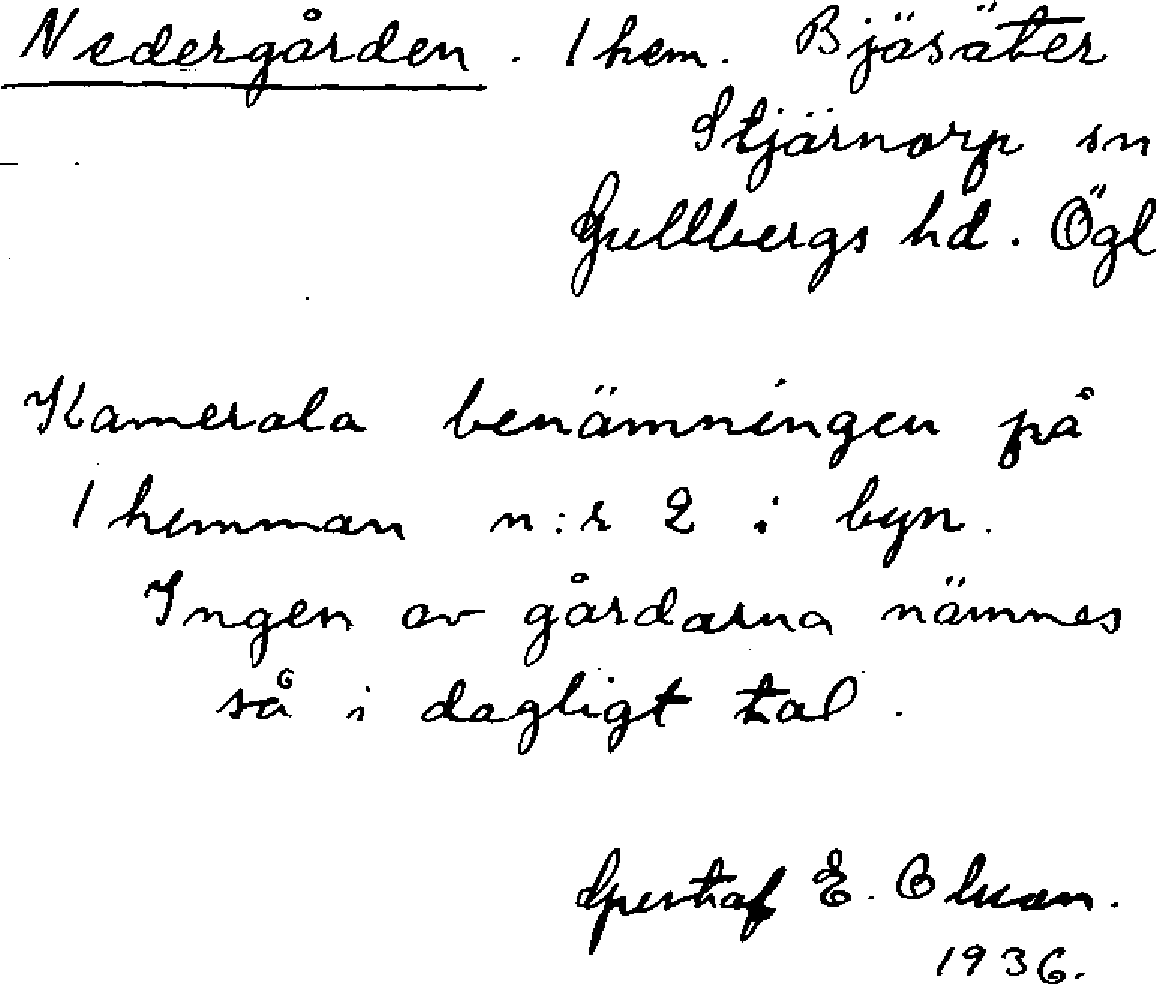 Nedergården. 1 hem. Bjäsäter
Stjärnorp sn
Gullbergs hd. Ögl
Kamerala benämningen på
1 hemman n:r 2 i byn.
Ingen av gårdarna nämnes
så i dagligt tal.
Gustaf E. Olsson.
1936.